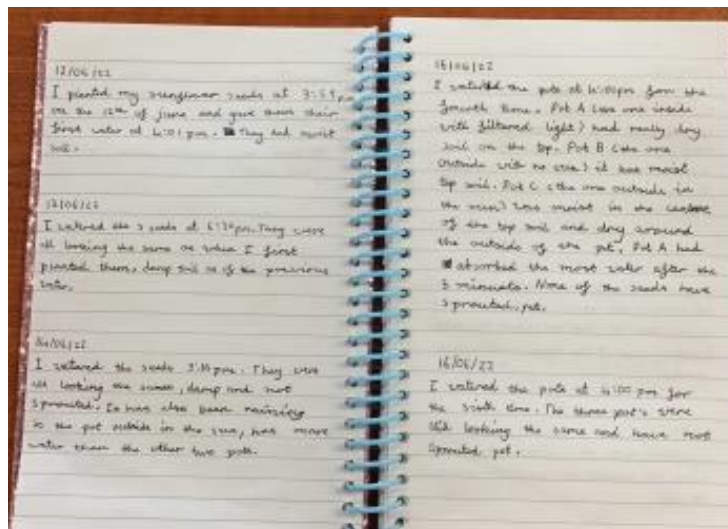 12/06/22
I planted my sunflower seeds at 3:59pm
on the 12th of june and gave them their
first water at 4:01 pm. They had moist
soil.
13/06/22
I watered the seeds at 6:30pm. They were
all looking the same as when I first
planted them, damp soil as of the previous
water.
14/06/22
I watered the seeds pm. They were
all looking the same, damp and not
sprouted. It has also been raining
so the pot outside in the sun, has more
water than the other two pots.
15/06/22
I watered the pots at 4:00pm for the
fourth time. Pot A (the one inside
with filtered light) had really dry
soil on the top. Pot B (the one
outside with no sun) it has moist
top soil. Pot C (the one outside in
the sun) was moist in the
of the top soil and dry around
the outside of the pot. Pot A had
absorbed the most water after the
minuets. None of the seeds have
sprouted, yet.
16/06/22
I watered the pots at 4:00 pm for
the time. The three pot's were
still looking the same and have not
sprouted yet.